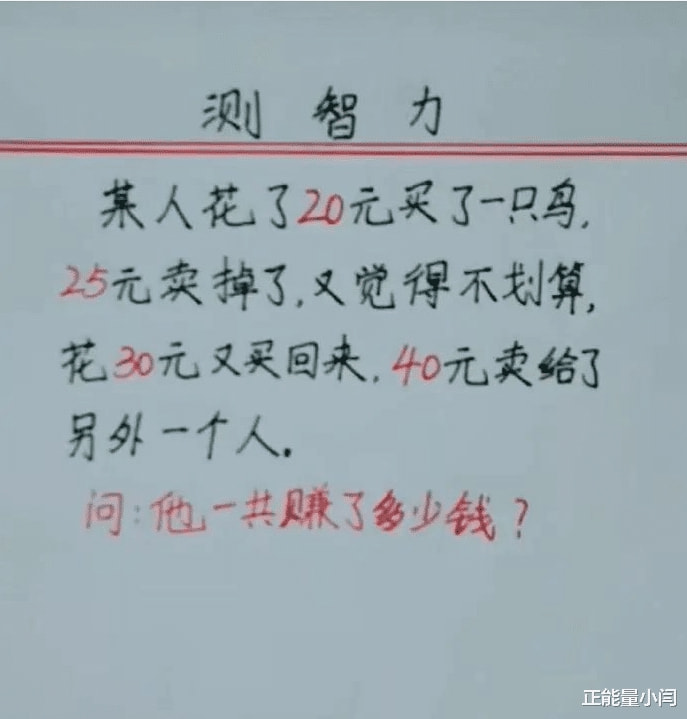 测智力
某人花了20元买了一只鸟,
25元卖掉了,又觉得不划算,
花30元又买回来,40元卖给了
另外一个人。
问:他一共赚了多少钱?
正能量小闫